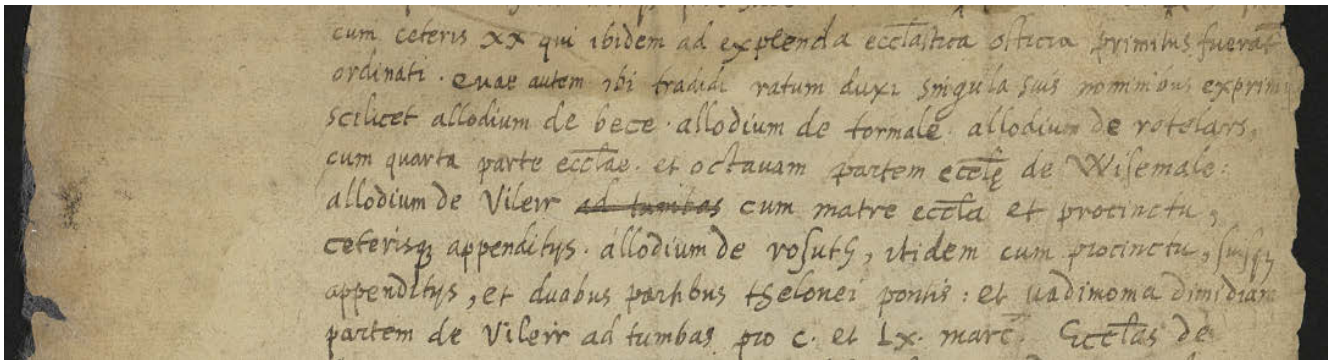 cum ceteris XX qui ibidem ad explenda eccl̅astica officia primitus fuera̅t
ordinati. Quae autem ibi tradidi ratum duxi singula suis nominibus exprimi
scilicet allodium de bece. allodium de tormale. allodium de rotelars,
cum quarta parte eccl̅ae. et octauam partem eccl̅ę de Wisemale:
allodium de Vilerr ad tumbas cum matre eccl̅a et procinctu,
ceterisq; appenditijs. allodium de rosuth, itidem cum procinctu, suisq;
appenditijs, et duabus partibus thelonei pontis: et uadimonia dimidiam
partem de Vilerr ad tumbas pro c. et Lx. marc̅ Eccl̅as de